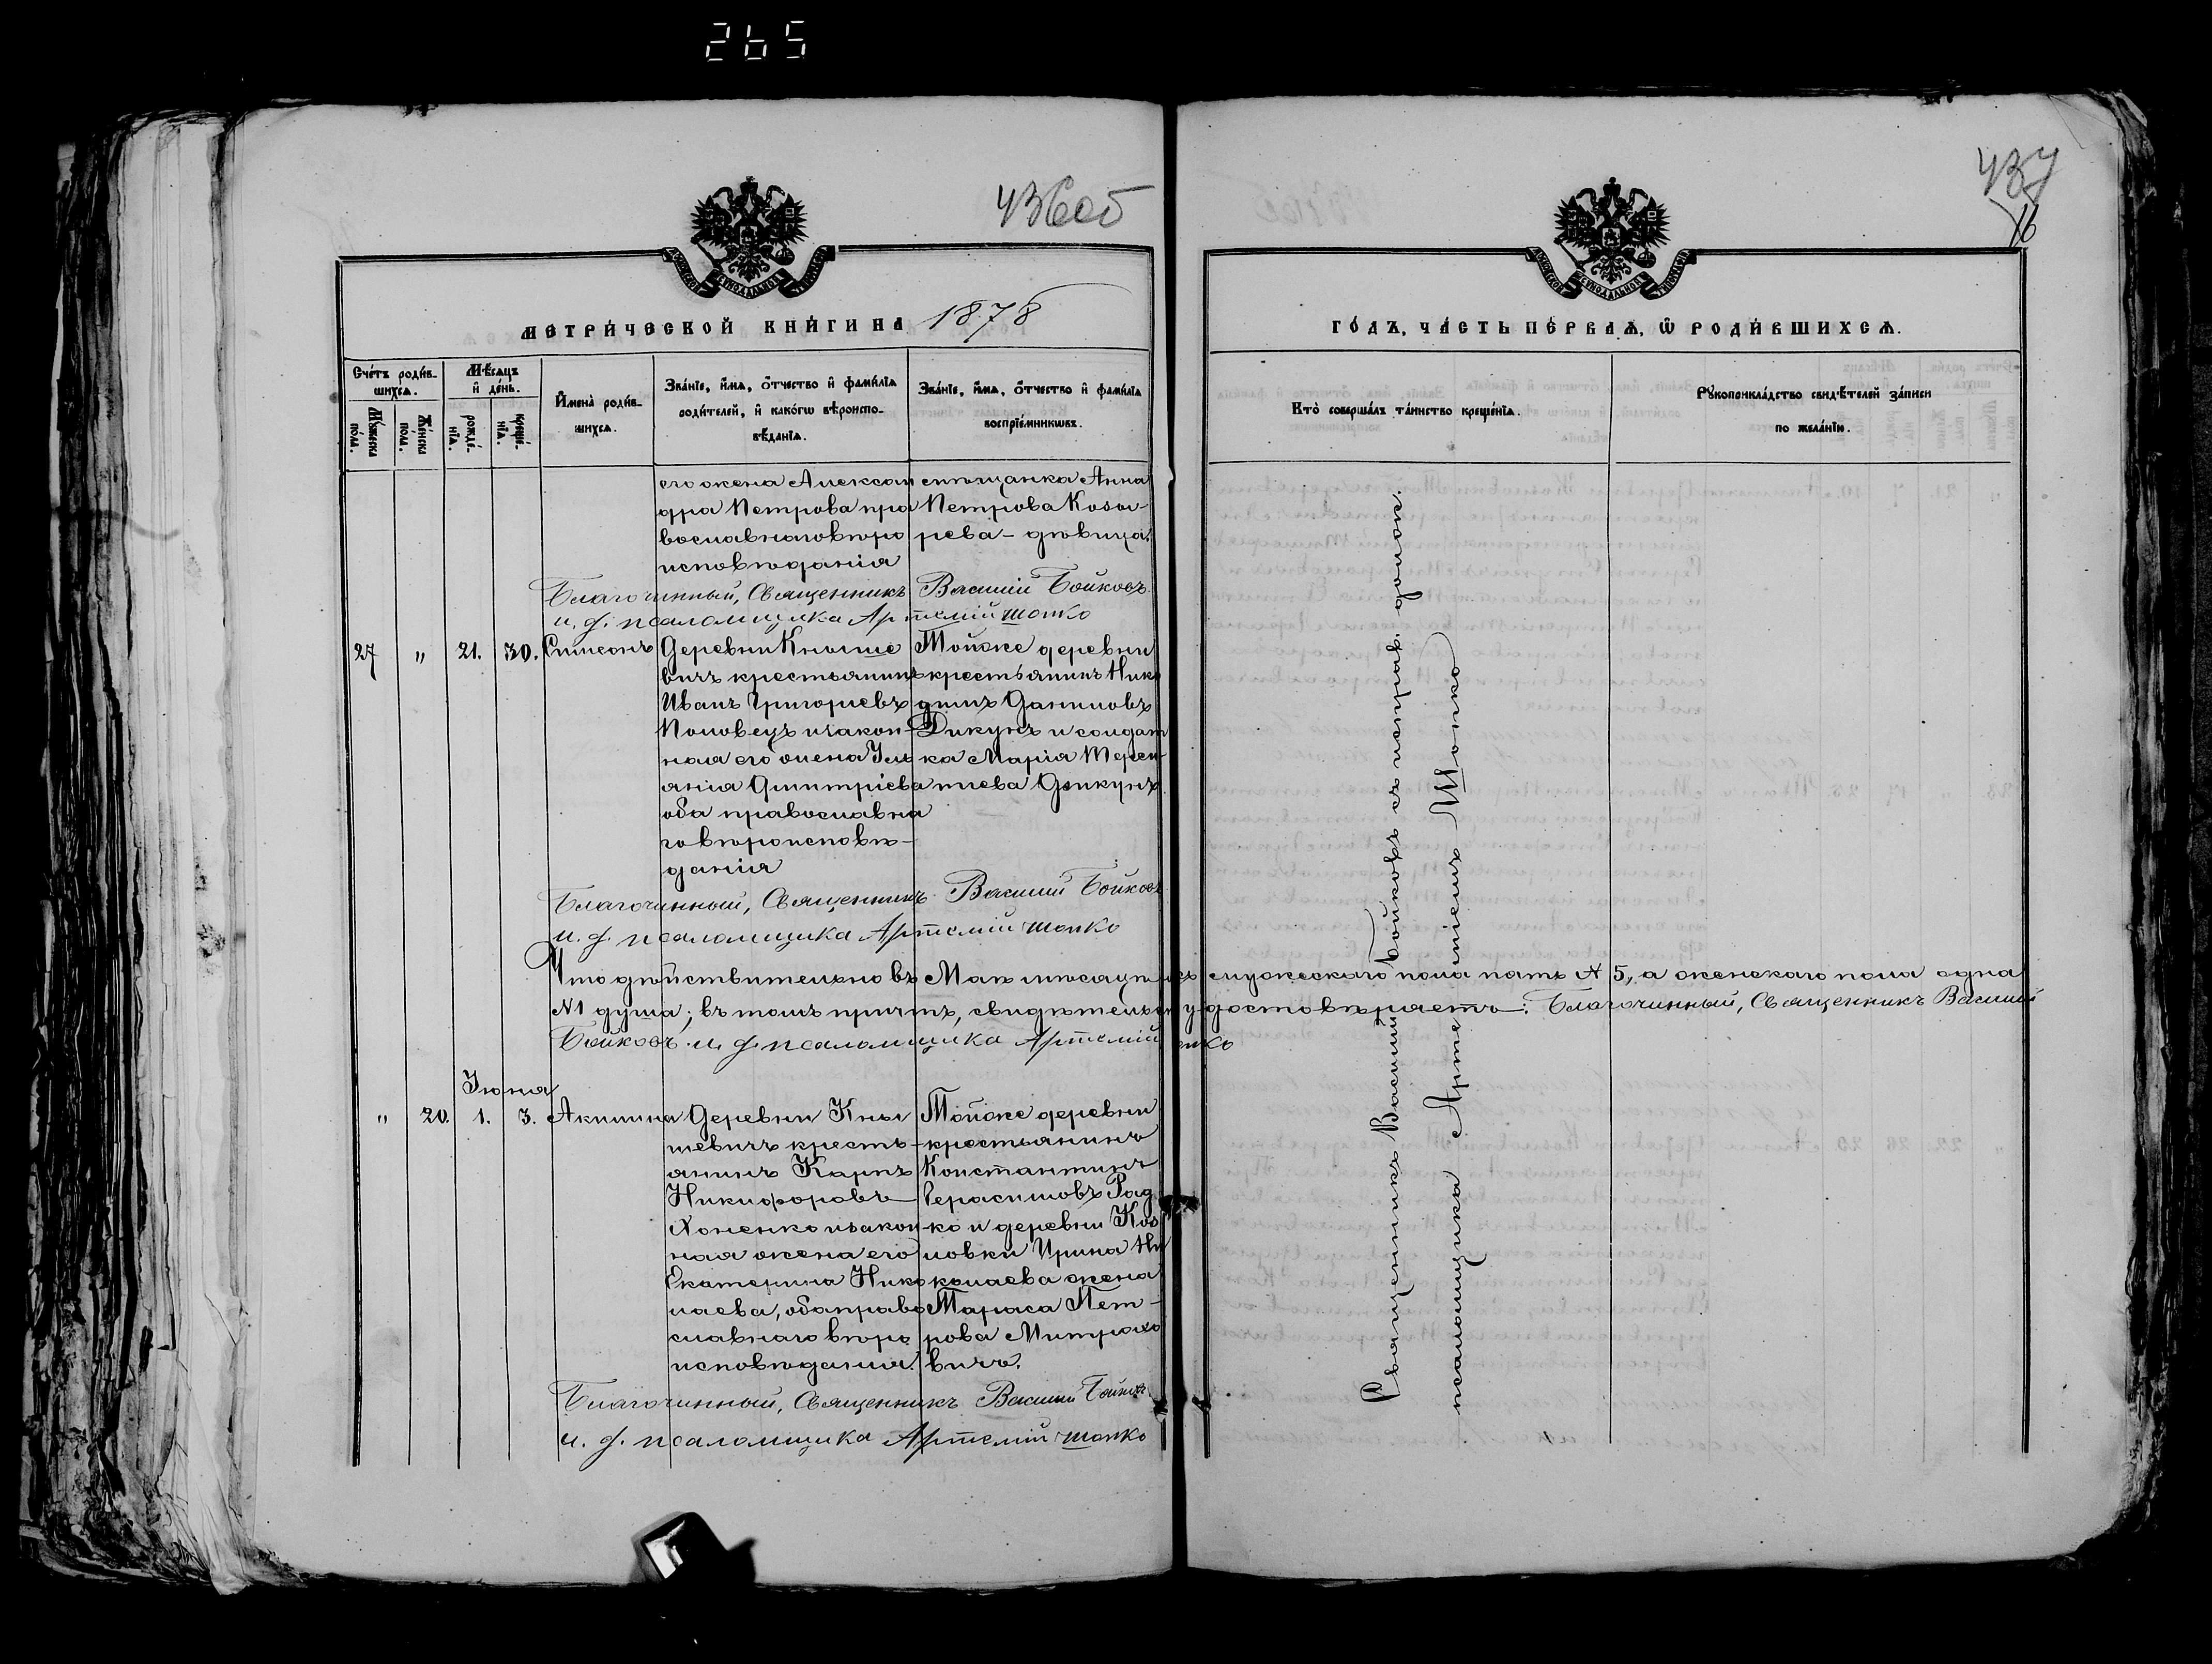 265
436об
437
16
МЕТРИЧЕСКОЙ КНИГИ НА 1878
ГОДЪ, ЧАСТЬ ПЕРВАЯ, Ѡ РОДИВШИХСЯ.
Счетъ родив-
шихся.
Мужеска пола.
Женска пола.
Мѣсяцъ и день.
рожде-
нія.
креще-
нія.
Имена родив-
шихся.
Званіе, имя, отчество и фамилія
родителей, и какогѡ вѣроиспо-
вѣданія.
Званіе, имя, отчество и фамилія
воспріемникѡвъ.
Кто совершалъ таинство крещенія.
Рукоприкладство свидѣтелей записи
по желанію.
его жена Алексан
дра Петрова пра
вославнаго вѣро
исповѣданія
мѣщанка Анна
Петрова
рева - дѣвица.
Благочинный, Священникъ Василій Бойковъ
и. д. псаломщика Артемій Шопко
27 " 21. 30. Симеонъ
Деревни Кныше
вичъ крестьянинъ
Иванъ Григорьевъ
Половецъ и закон-
ная его жена Уль
янія Димитріева
оба православна
го вѣроисповѣ-
данія
Тойже деревни
крестьянинъ Нико
димъ Даниловъ
Дикунъ и солдат
ка Марія Терен
тіева Дикунъ
Благочинный, Священникъ Василій Бойковъ
и. д. псаломщика Артемій Шопко
Что дѣйствительно въ Маѣ мѣсяцѣ мужескаго пола пять № 5, а женскаго пола одна
№1 душа; въ томъ причтъ, свидѣтельствуя удостовѣряетъ. Благочинный, Священникъ Василій
Бойковъ и. д. псаломщика Артемій Шопко
Іюня
" 20. 1. 3. Акилина
Деревни Кны
шевичъ кресть-
янинъ Карпъ
Никифоровъ
Хоненко и закон-
ная жена его
Екатерина Нико
лаева, оба право
славнаго вѣро
исповѣданія.
Тойже деревни
крестьянинъ
Константинъ
Герасимовъ Рад
ко и деревни Коз
ловки Ирина Ни
колаева жена
Тараса Пет-
рова Митрахо
вичъ.
Благочинный, Священникъ Василій Бойковъ
и. д. псаломщика Артемій Шопко
Священникъ Василій Бойковъ съ исправ. долж.
псаломщика Артеміемъ Шопко